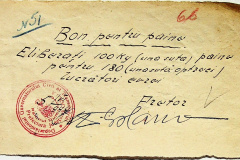 N 51
66
Bon pentru paine
Eliberați 100 kg (una suta) paine
pentru 180 (una suta optzeci)
lucrători evrei
Pretor